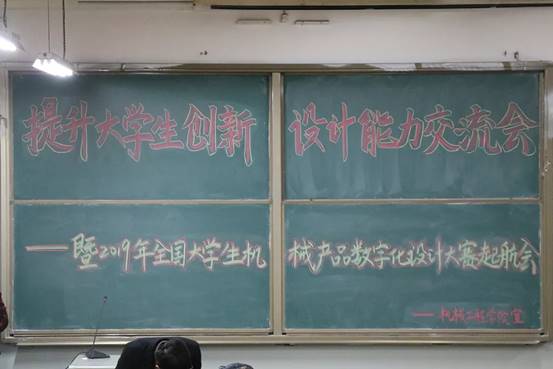 提升大学生创新设计能力交流会
——暨2019年全国大学生机械产品数字化设计大赛起航会
——机械工程学院宣